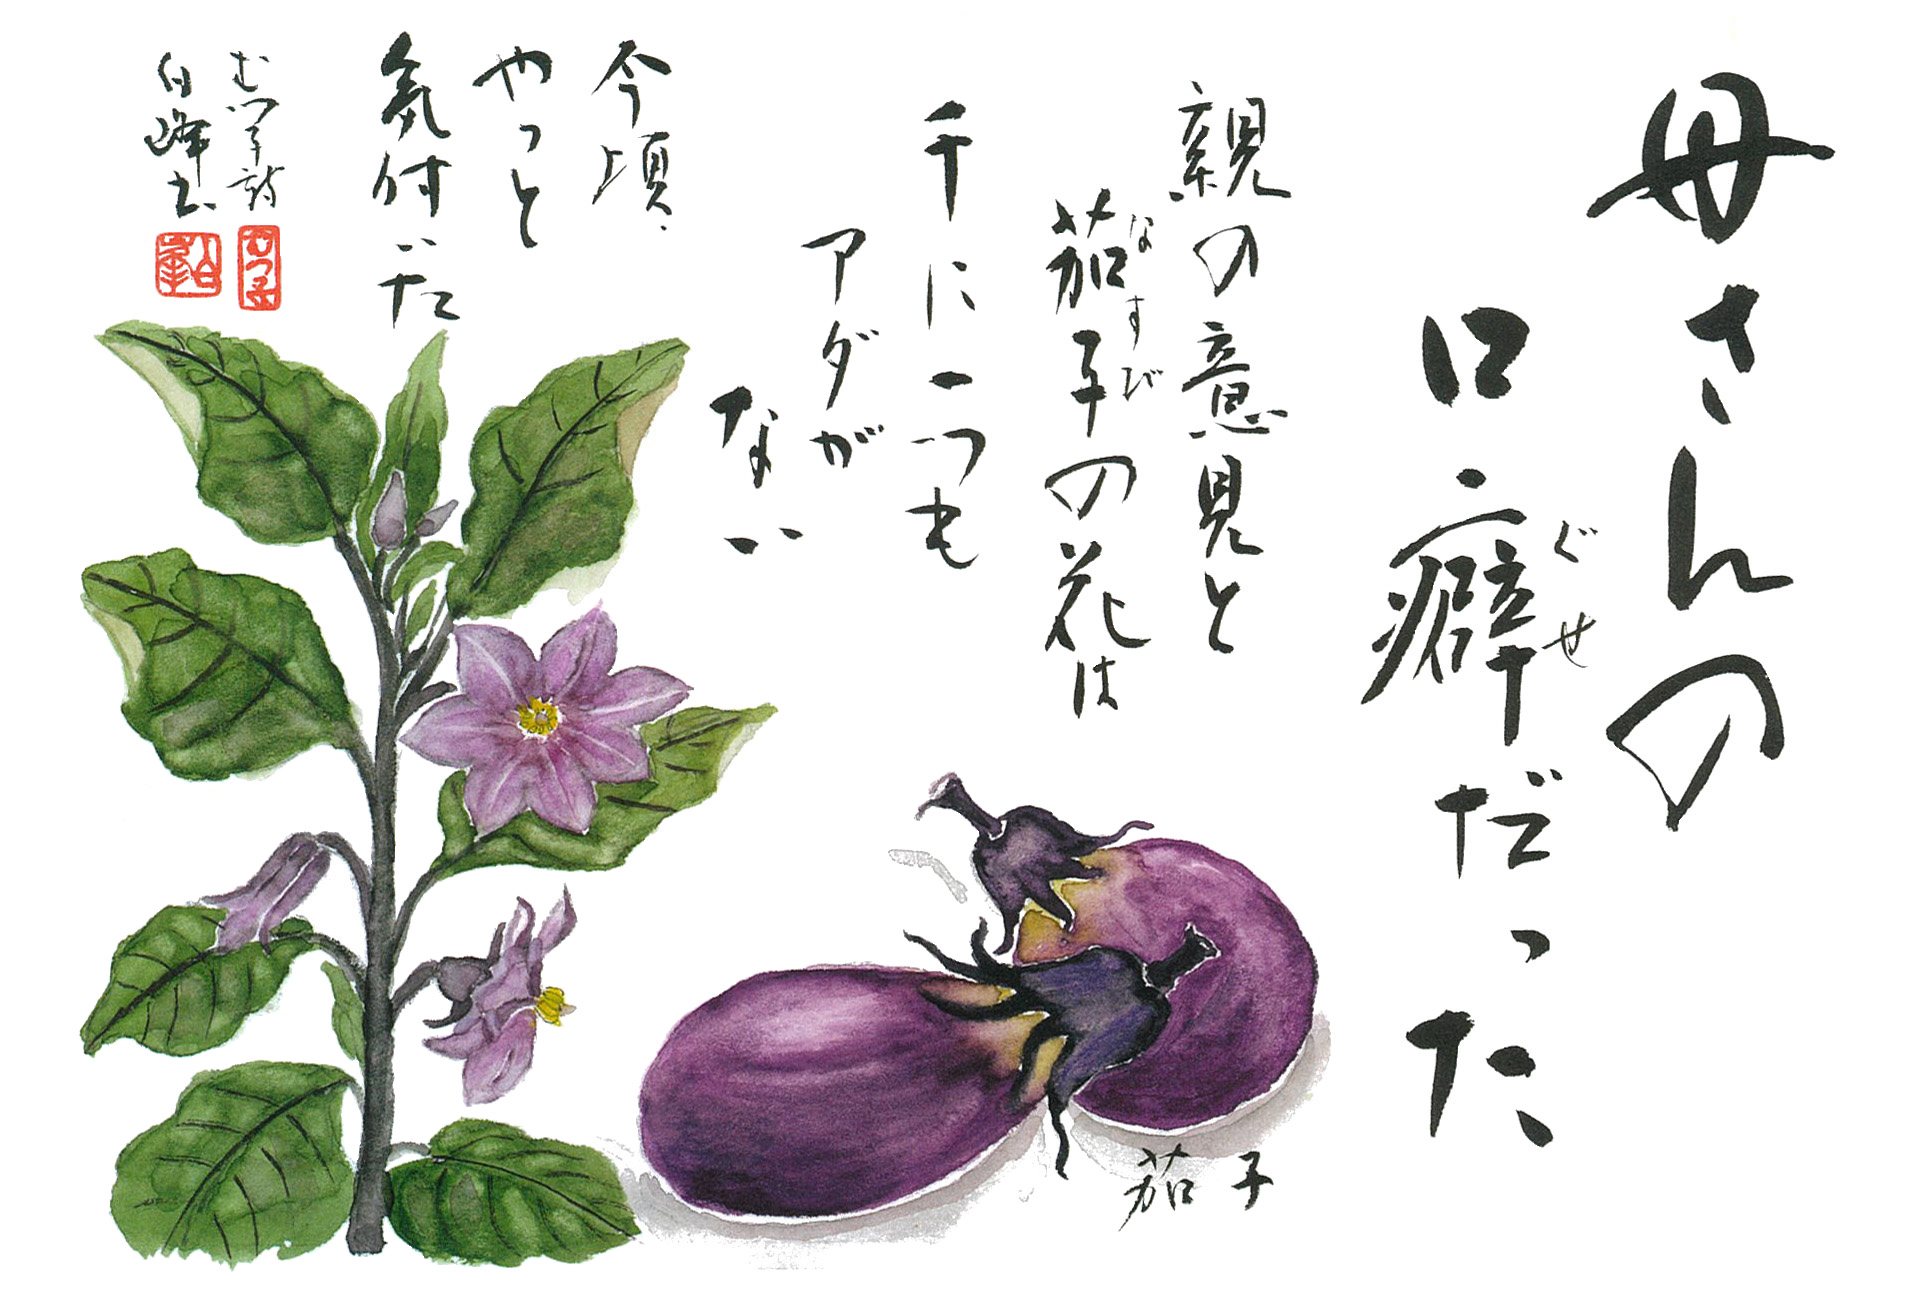 母さんの
口癖だった
ぐせ
親の意見と
茄子の花は
なすび
千に一つも
アダが
ない
今頃、
やっと
気付いた
白峰
茄子